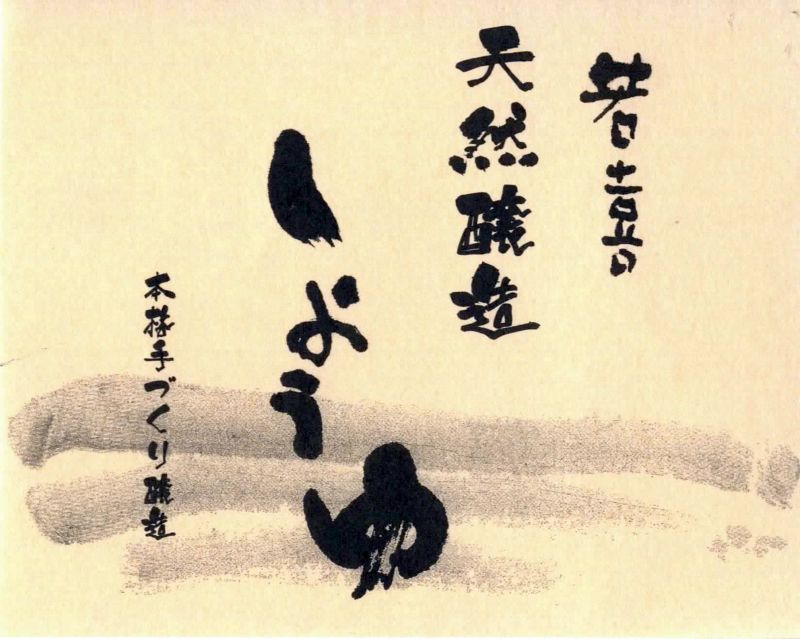 若喜
天然醸造
しょうゆ
本格手づくり醸造